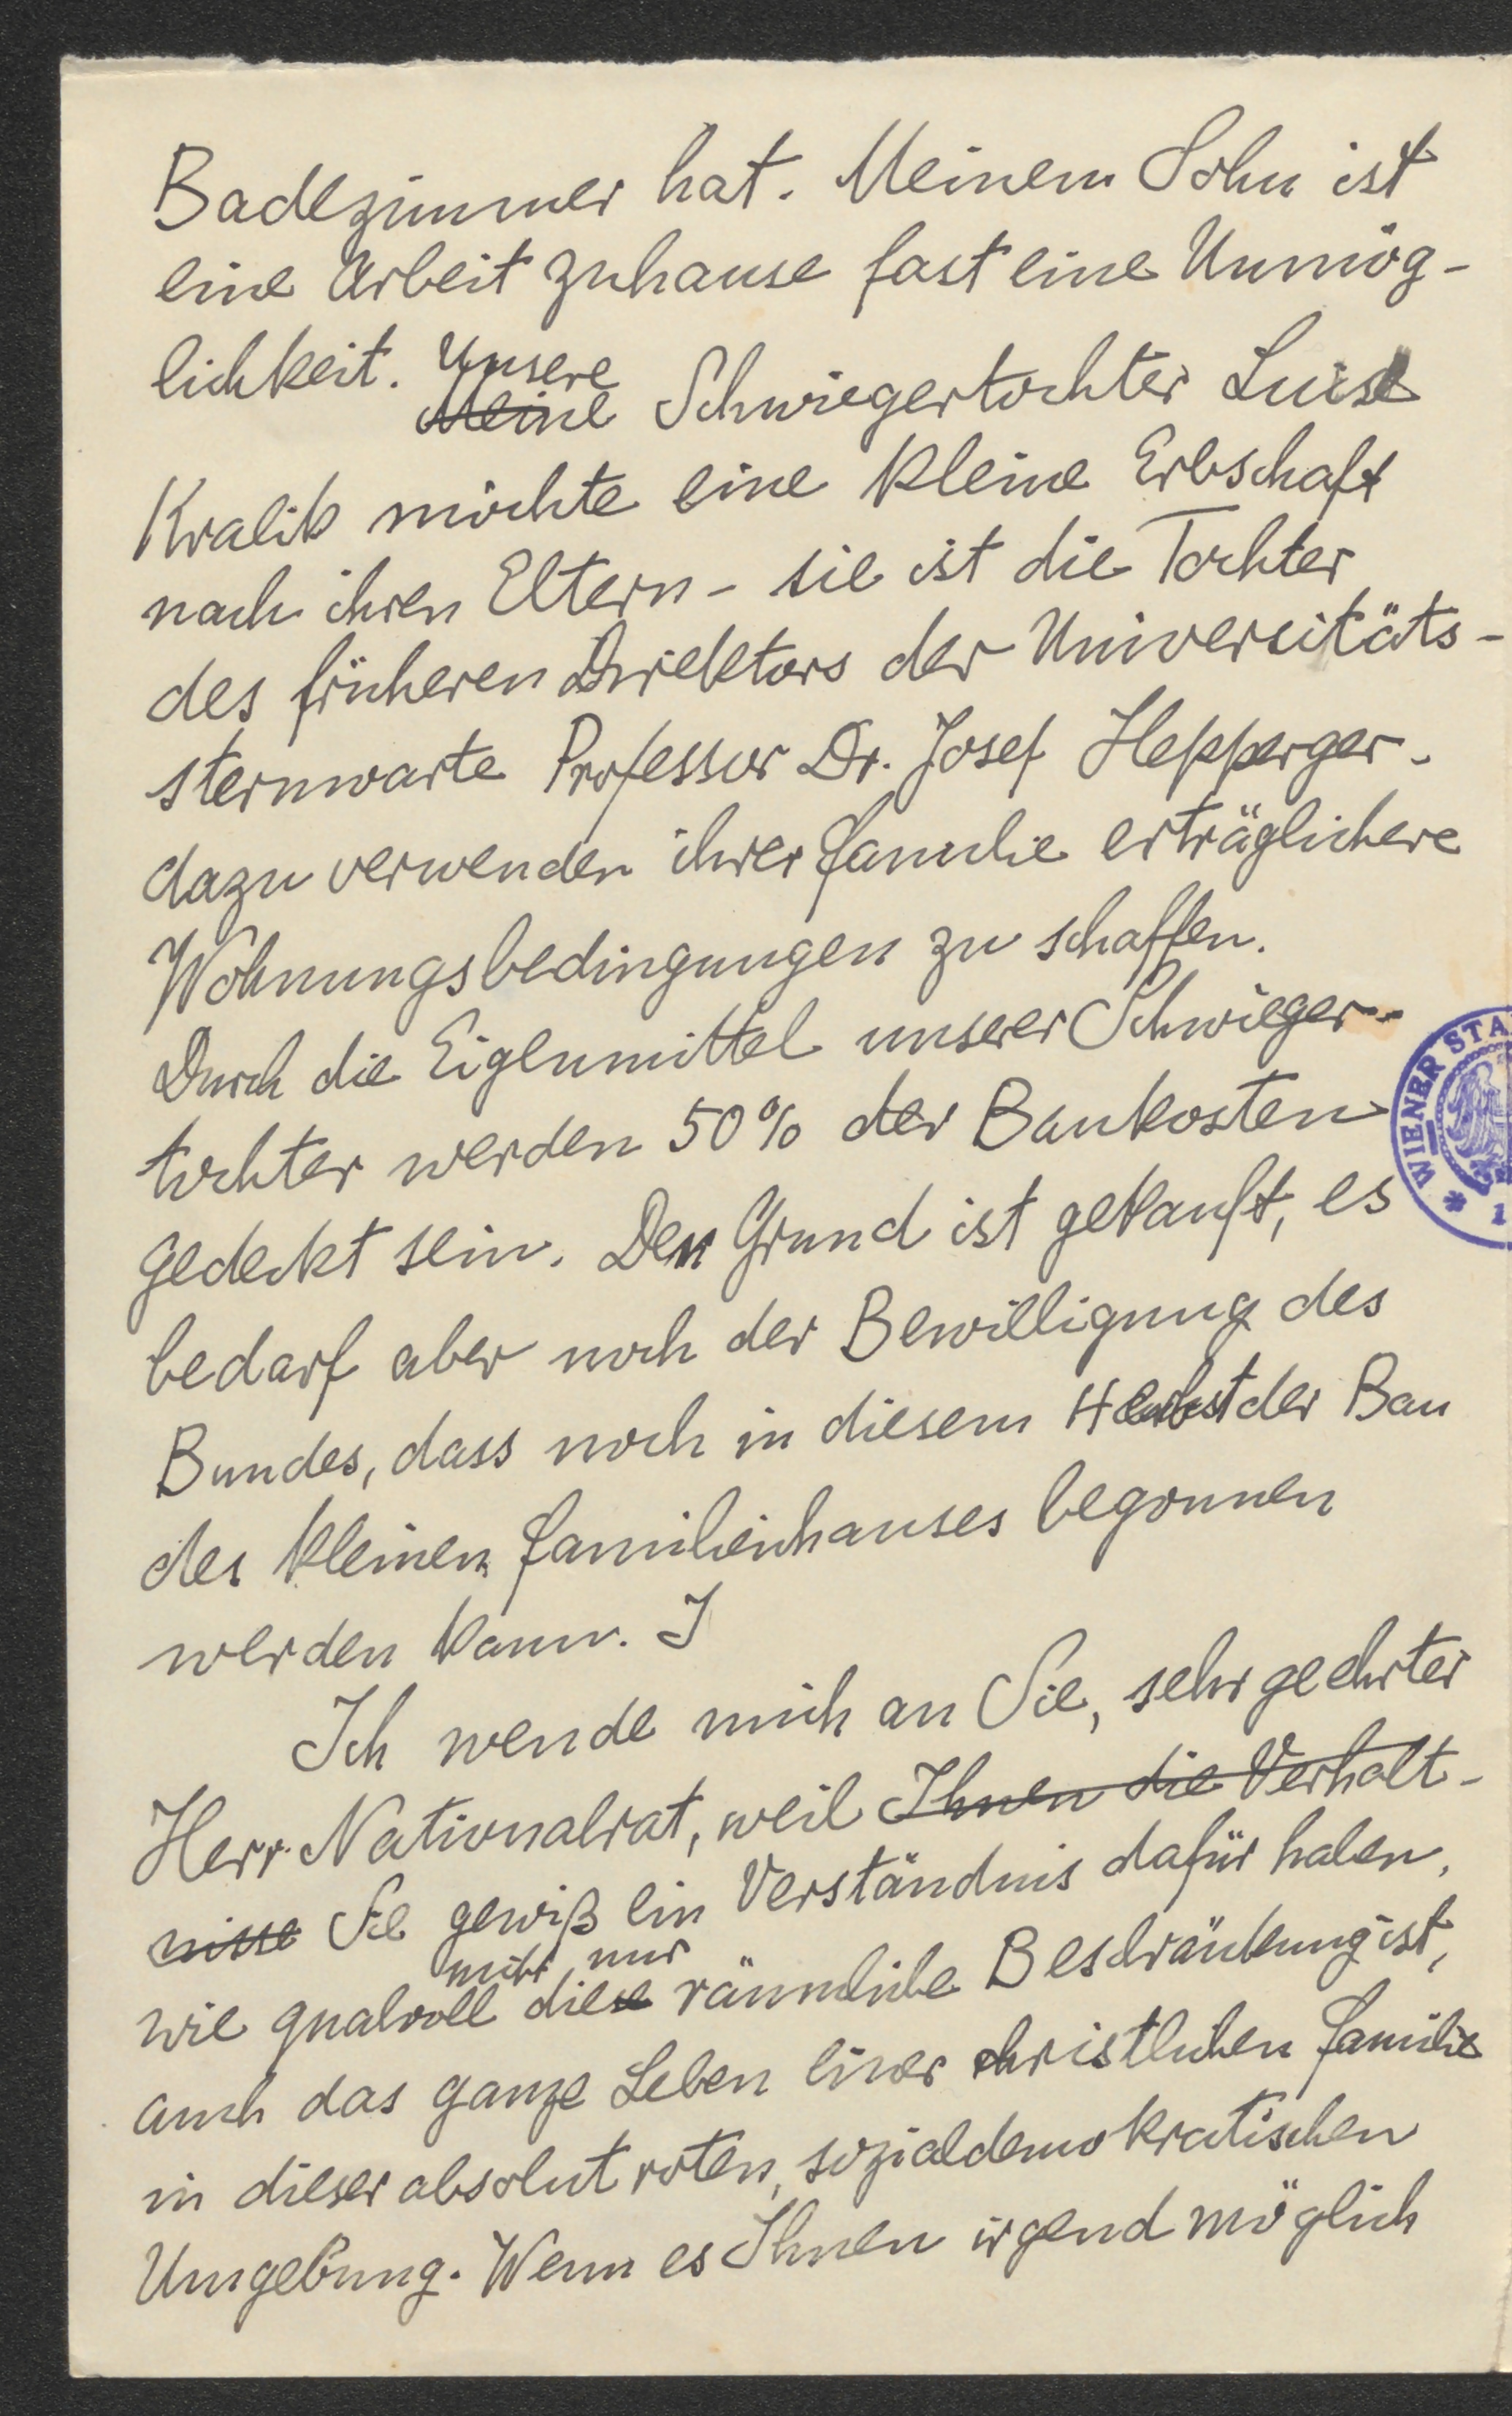 Badezimmer hat. Meinem Sohn ist
eine Arbeit zuhause fast eine Unmög-
lichkeit. Unsere
Meine Schwiegertochter Luise
Kralik möchte eine kleine Erbschaft
nach ihren Eltern - sie ist die Tochter
des früheren Direktors der Universitäts-
sternwarte Professor Dr. Josef Hepperger -
dazu verwenden ihrer Familie erträglichere
Wohnungsbedingungen zu schaffen.
Durch die Eigenmittel unserer Schwieger-
tochter werden 50% der Baukosten
gedeckt sein. Der Grund ist gekauft, es
bedarf aber noch der Bewilligung des
Bundes, dass noch in diesem Herbst der Bau
des kleinen Familienhauses begonnen
werden kann. I
Ich wende mich an Sie, sehr geehrter
Herr Nationalrat, weil Ihnen die Verhält-
nisse Sie gewiß ein Verständnis dafür haben,
nicht nur
wie qualvoll diese räumliche Beschränkung ist,
auch das ganze Leben einer christlichen Familie
in dieser absolut roten, sozialdemokratischen
Umgebung. Wenn es Ihnen irgend möglich
WIENER STA
1